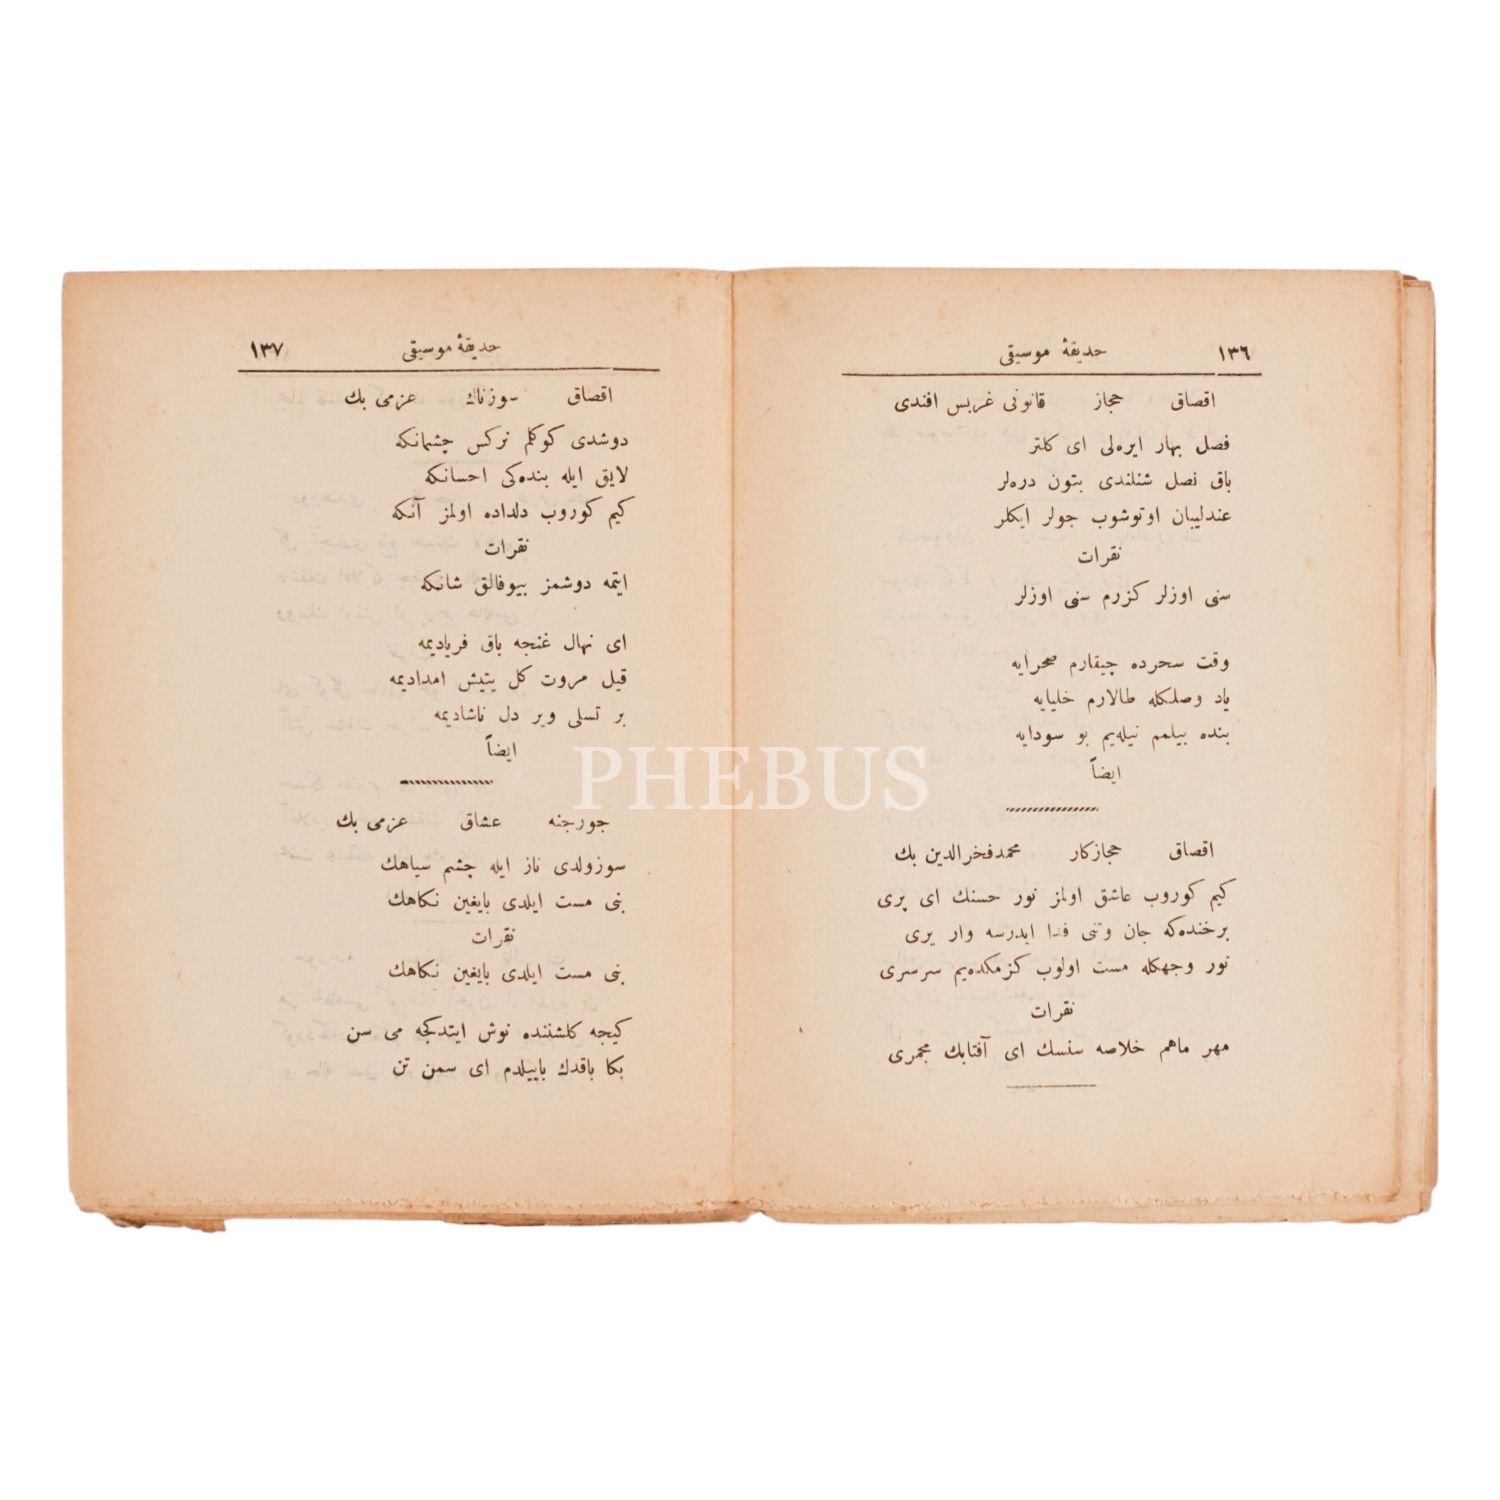 ١٣٦ حديقۀ موسيقى
اقصاق حجاز قانونى غربس افندى
فصل بهار ايره‌لى اى كلتر
باق نصل شنلندى بتون دره‌لر
عندليبان اوتوشوب جولر ايكلر
نقرات
سنى اوزلر كزرم سنى اوزلر
وقت سحرده چيقارم صحرايه
ياد وصلكله طالارم خليايه
بنده بيلمم نيله‌يم بو سودايه
ايضاً
اقصاق حجازكار محمد فخرالدين بك
كيم كوروب عاشق اولمز نور حسنك اى پرى
برخنده‌كه جان وتنى فدا ايدرسه وار يرى
نور وجهكله مست اولوب كزمكده‌يم سرسرى
نقرات
مهر ماهم خلاصه سنسك اى آفتابك مجمرى
حديقۀ موسيقى ١٣٧
اقصاق سوزناك عزمى بك
دوشدى كوكلم نركس چشمانكه
لايق ايله بنده‌كى احسانكه
كيم كوروب دلداده اولمز آنكه
نقرات
ايتمه دوشمز بيوفالق شانكه
اى نهال غنجه باق فرياديمه
قيل مروت كل يتيش امداديمه
بر تسلى وير دل ناشاديمه
ايضاً
جورجنه عشاق عزمى بك
سوزولدى ناز ايله چشم سياهك
بنى مست ايلدى بايغين نكاهك
نقرات
بنى مست ايلدى بايغين نكاهك
كيجه كلشننده نوش ايتدكجه مى سن
بكا باقدك باييلدم اى سمن تن
PHEBUS